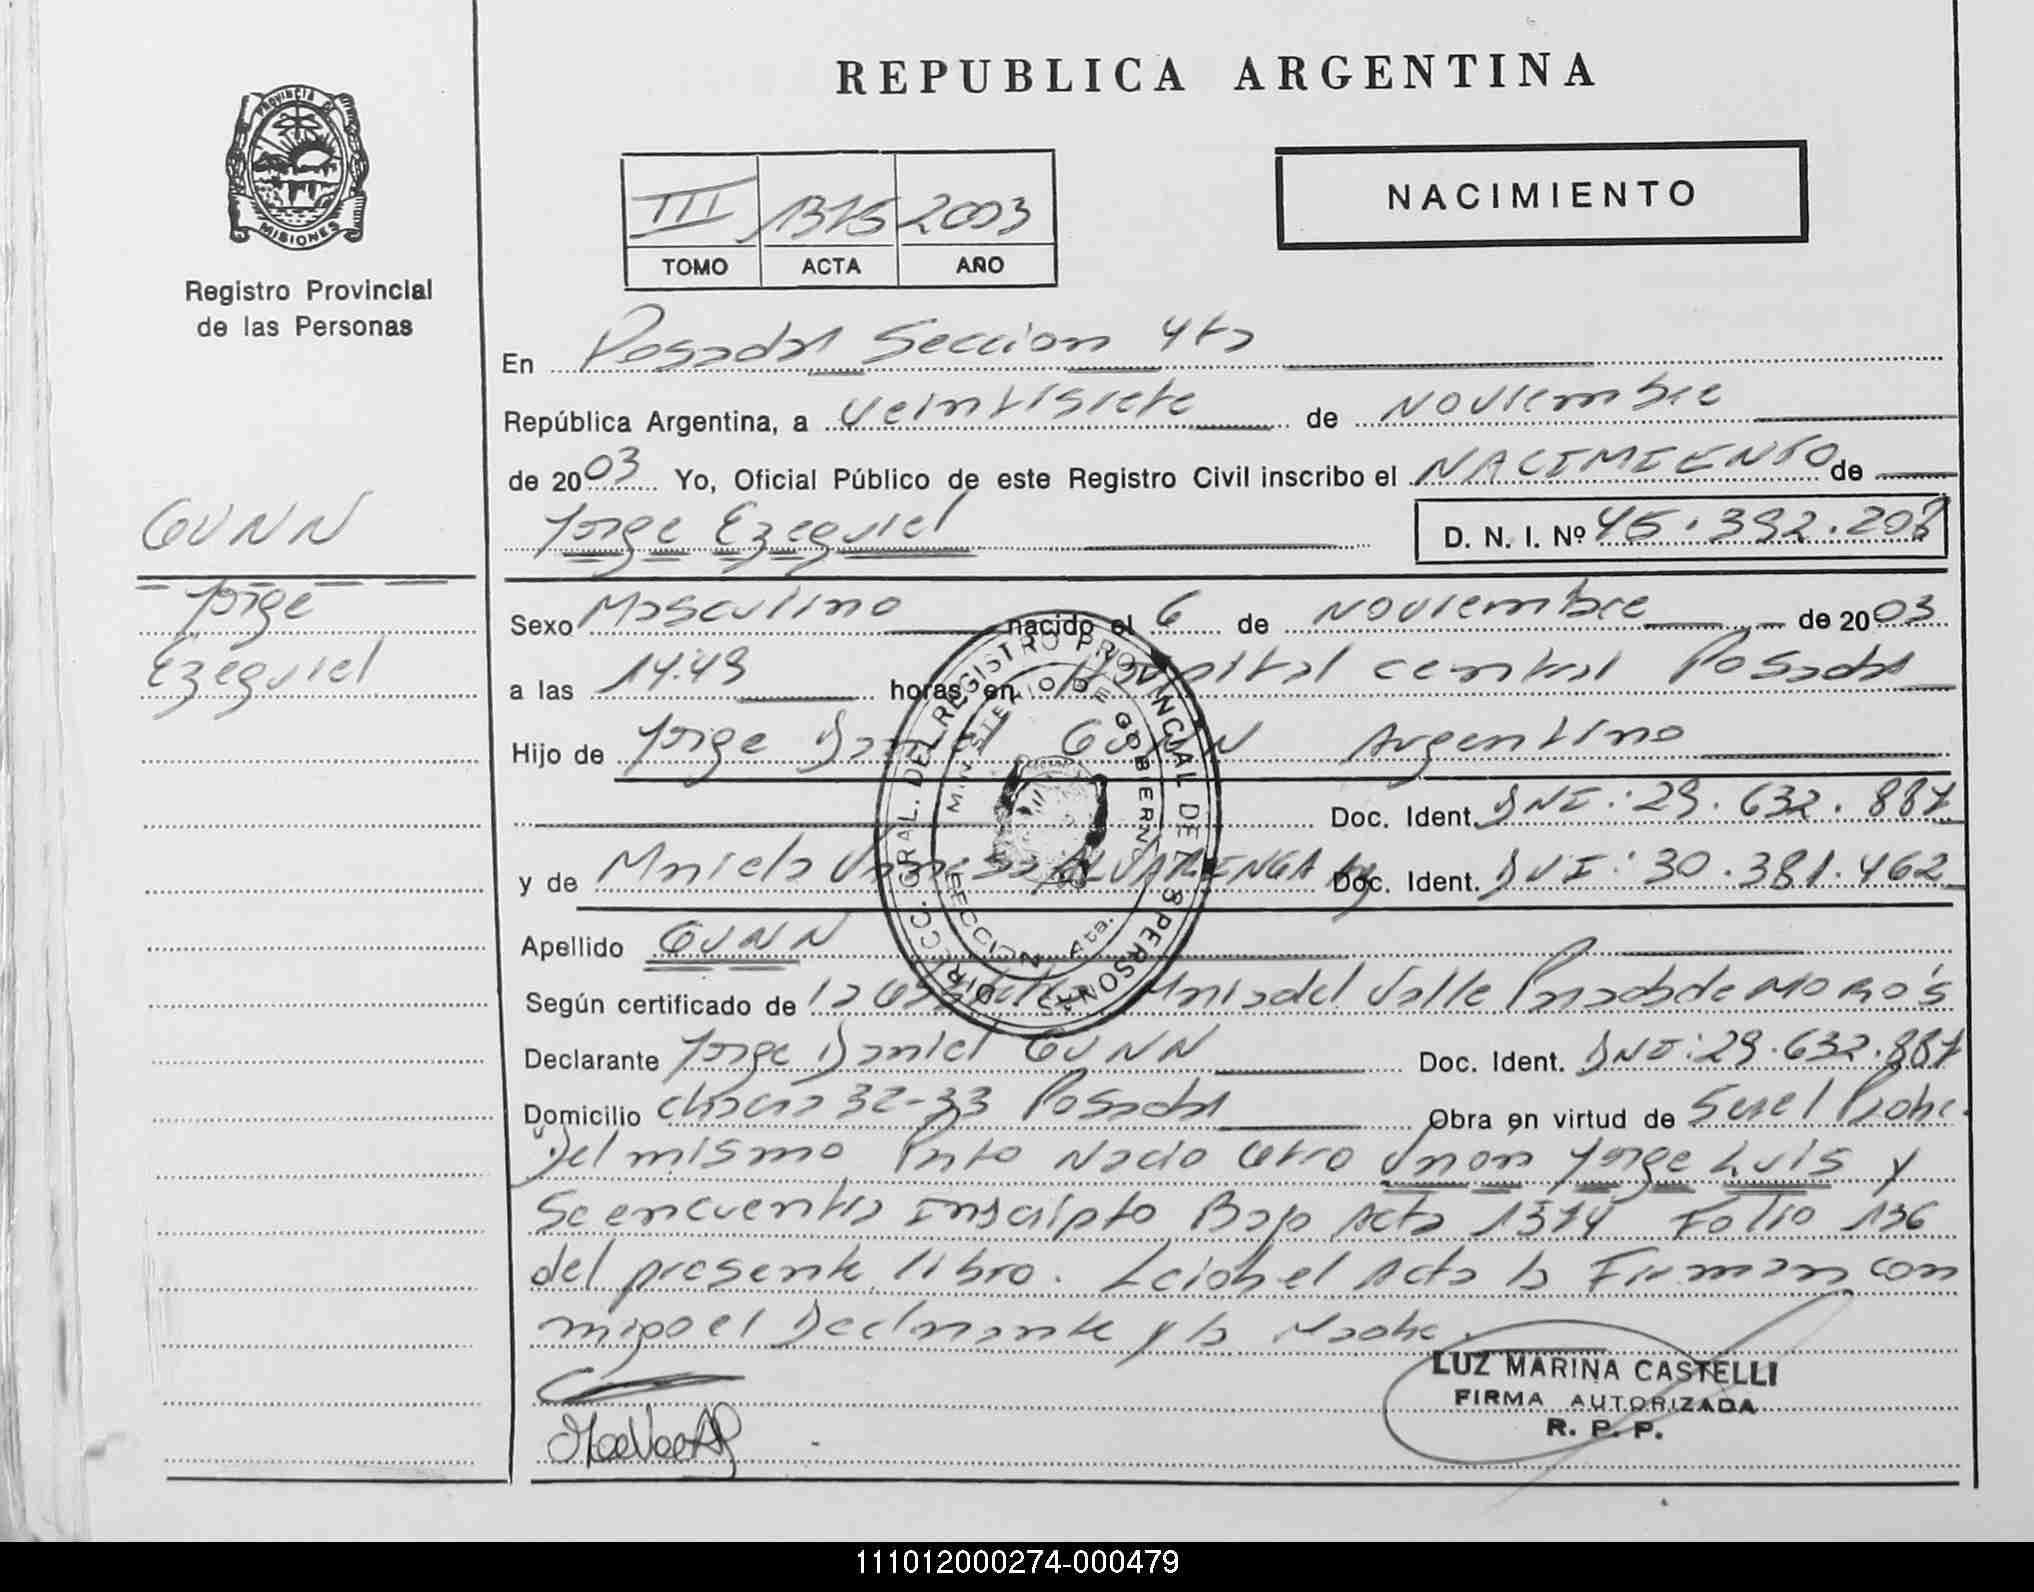 REPUBLICA ARGENTINA
PROVINCIA DE
MISIONES
Registro Provincial
de las Personas
III 1375 2003
TOMO ACTA AÑO
NACIMIENTO
En Posadas Seccion 4ta
República Argentina, a veintisiete de Noviembre
de 2003 Yo, Oficial Público de este Registro Civil inscribo el NACIMIENTO de
Jorge Ezequiel D. N. I. Nº 45.392.208
GUNN
Jorge
Ezequiel
Sexo Masculino nacido el 6 de Noviembre de 2003
a las 14.49 horas en Hospital central Posadas
Hijo de Jorge Daniel GUNN Argentino
Doc. Ident. DNI: 29.632.887
y de Mariela Vanesa ALVARENGA Arg Doc. Ident. DNI: 30.381.462
Apellido GUNN
Según certificado de la Obstetra Maria del Valle Prados de
Declarante Jorge Daniel GUNN Doc. Ident. DNI: 29.632.887
Domicilio chacra 32-33 Posadas Obra en virtud de Ser el Padre.
Del mismo Parto Nacio Otro Varon Jorge Luis y
Se encuentra Inscripto Bajo Acta 1374 Folio 136
del presente libro. Leida el Acta la Firman con
migo el Declarante y la Madre.
DIRECC. GRAL. DEL REGISTRO PROVINCIAL DE LAS PERSONAS
MINISTERIO DE GOBIERNO
SECCION 4ta.
LUZ MARINA CASTELLI
FIRMA AUTORIZADA
R. P. P.
111012000274-000479